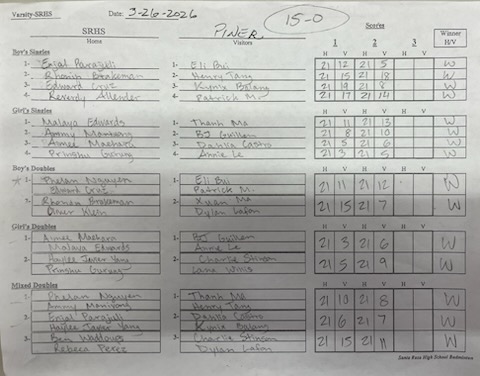 Varsity-SRHS Date: 3-26-2026 15-0
SRHS PINER Scores Winner
Home Visitors 1 2 3 H/V
Boy's Singles H V H V H V
1- Enjal Parajuli 1- Eli Bui 21 12 21 5 W
2- Rhonin Brakeman 2- Henry Tang 21 15 21 18 W
3- Edward Cruz 3- Kynix Balang 21 19 21 8 W
4- Allender 4- Patrick M 21 17 21 14 W
Girl's Singles H V H V H V
1- Malaya Edwards 1- Thanh Ma 21 11 21 13 W
2- Ammy 2- BJ Guillen 21 8 21 10 W
3- Aimee Maehara 3- Danika Castro 21 5 21 6 W
4- Prinshu Gurung 4- Annie Le 21 3 21 5 W
Boy's Doubles H V H V H V
1- Phelan Nguyen 1- Eli Bui 21 11 21 12 W
Edward Cruz Patrick M.
2- Brakeman 2- Xuan Ma 21 15 21 7 W
Oliver Dylan Lafon
Girl's Doubles H V H V H V
1- Aimee Maehara 1- BJ Guillen 21 3 21 6 W
Malaya Edwards Annie Le
2- Haylee Javer Yang 2- Charlie Stinson 21 5 21 9 W
Prinshu Gurung Lana Willis
Mixed Doubles H V H V H V
1- Phelan Nguyen 1- Thanh Ma 21 10 21 8 W
Ammy Henry Tang
2- Enjal Parajuli 2- Danika Castro 21 6 21 7 W
Haylee Javer Yang Kynix Balang
3- Ben 3- Charlie Stinson 21 15 21 11 W
Rebeca Perez Dylan Lafon
Santa Rosa High School Badminton